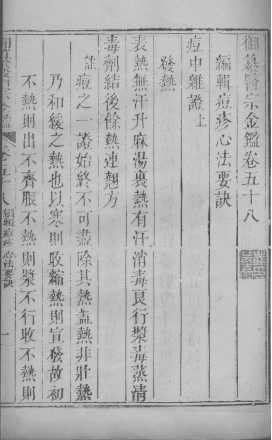 御纂醫宗金鑑卷五十八
編輯痘疹心法要訣
痘中雜證上
發熱
表熱無汗升麻湯裏熱有汗消毒良行漿毒蒸清
毒劑結後餘熱連翹方
註痘之一證始終不可盡除其熱蓋熱非壯熱
乃和緩之熱也以寒則收縮熱則宣發故初
不熱則出不齊脹不熱則漿不行收不熱則
編輯痘疹心法要訣
一